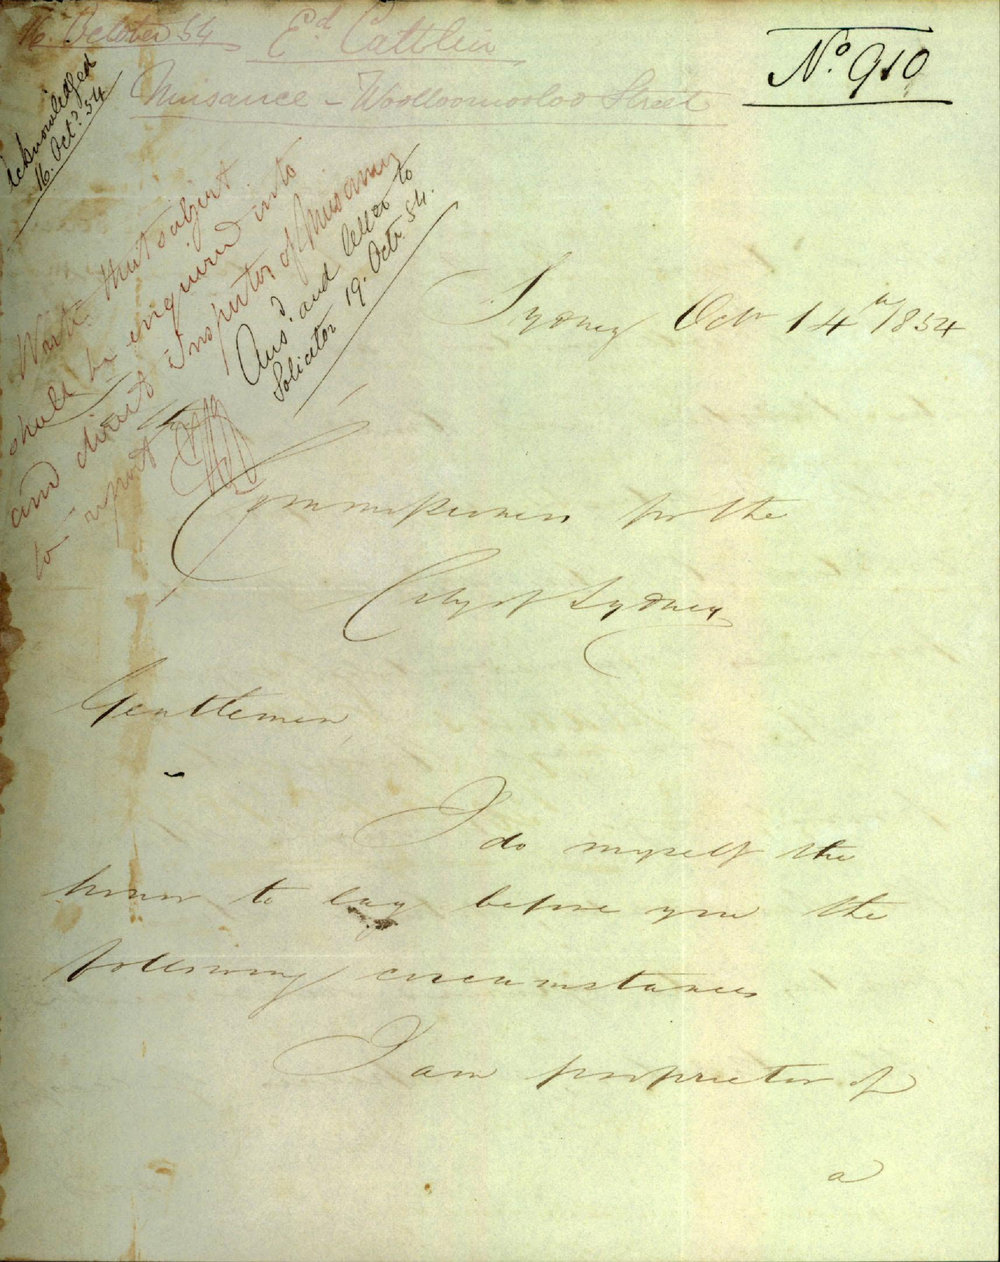 16. October 54 Ed Cattlin
Nuisance - Woolloomooloo Street
No. 910
Acknowledged
16. Oct. 54
that subject
shall be enquired into
and direct Inspector of Nuisances
to report
Ansd. and letter to
Solicitor 19. Octr. 54.
Sydney Octr 14th 1854
To the
Commissioners for the
City of Sydney
Gentlemen,
I do myself the
honor to lay before you the
following circumstances
I am proprietor of
a